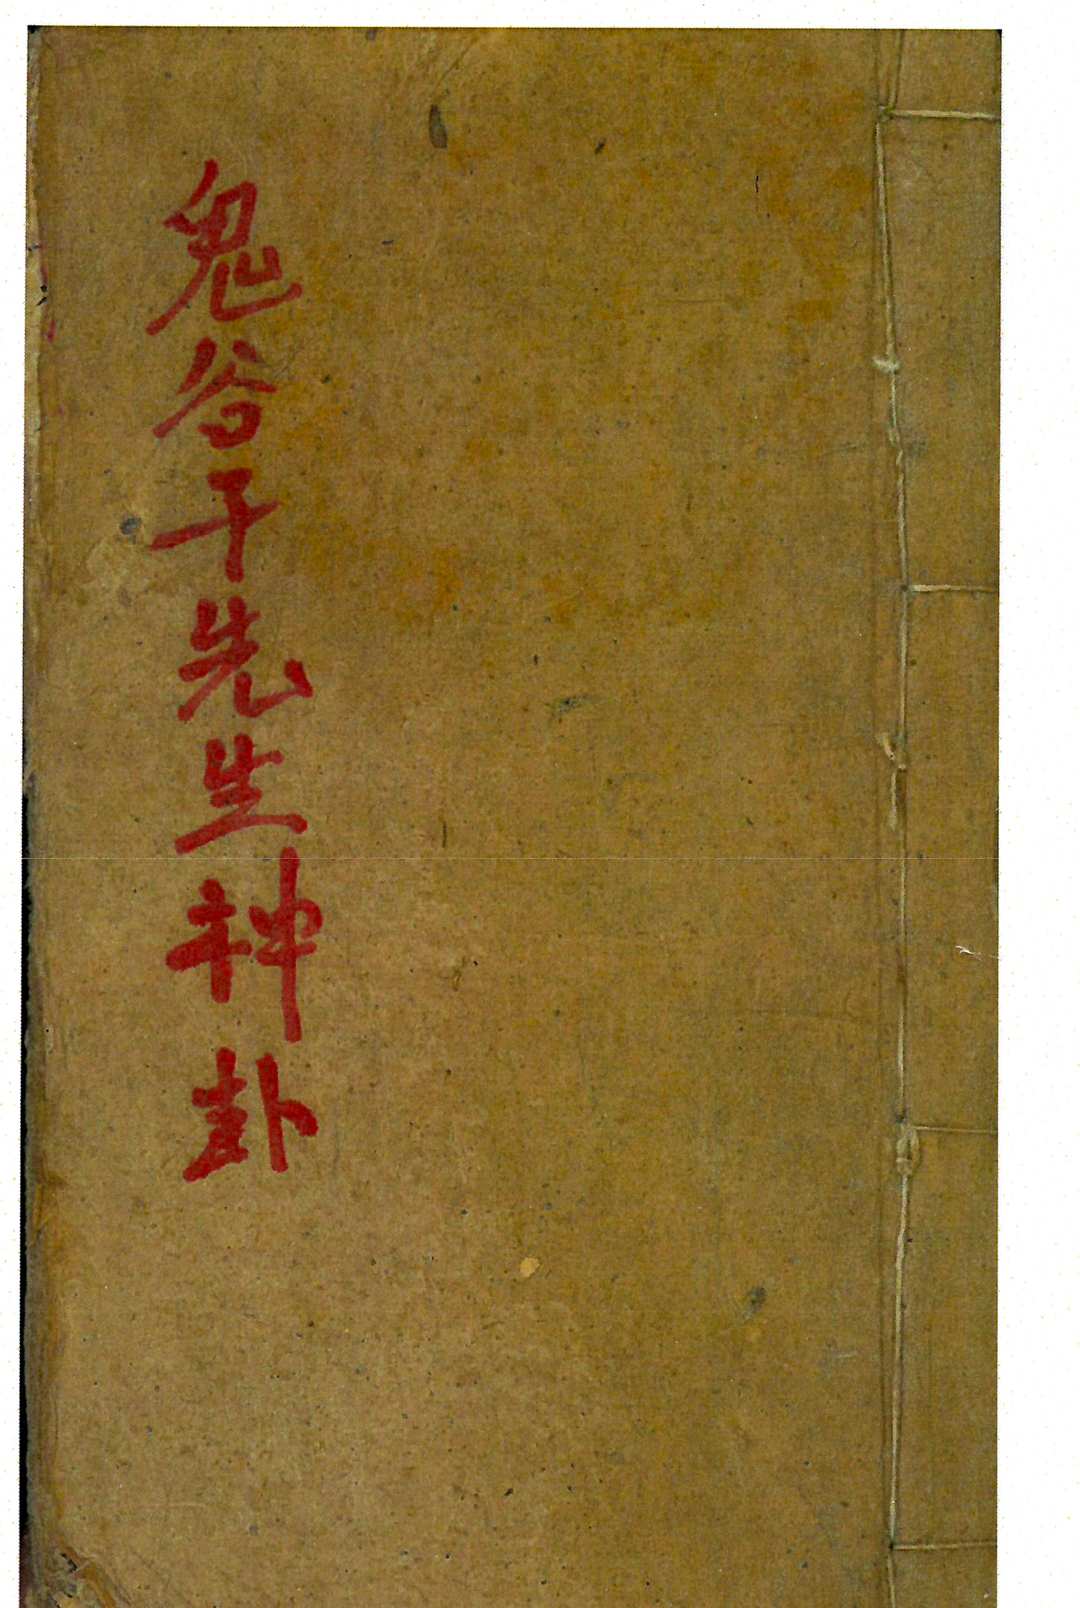 鬼谷子先生神卦